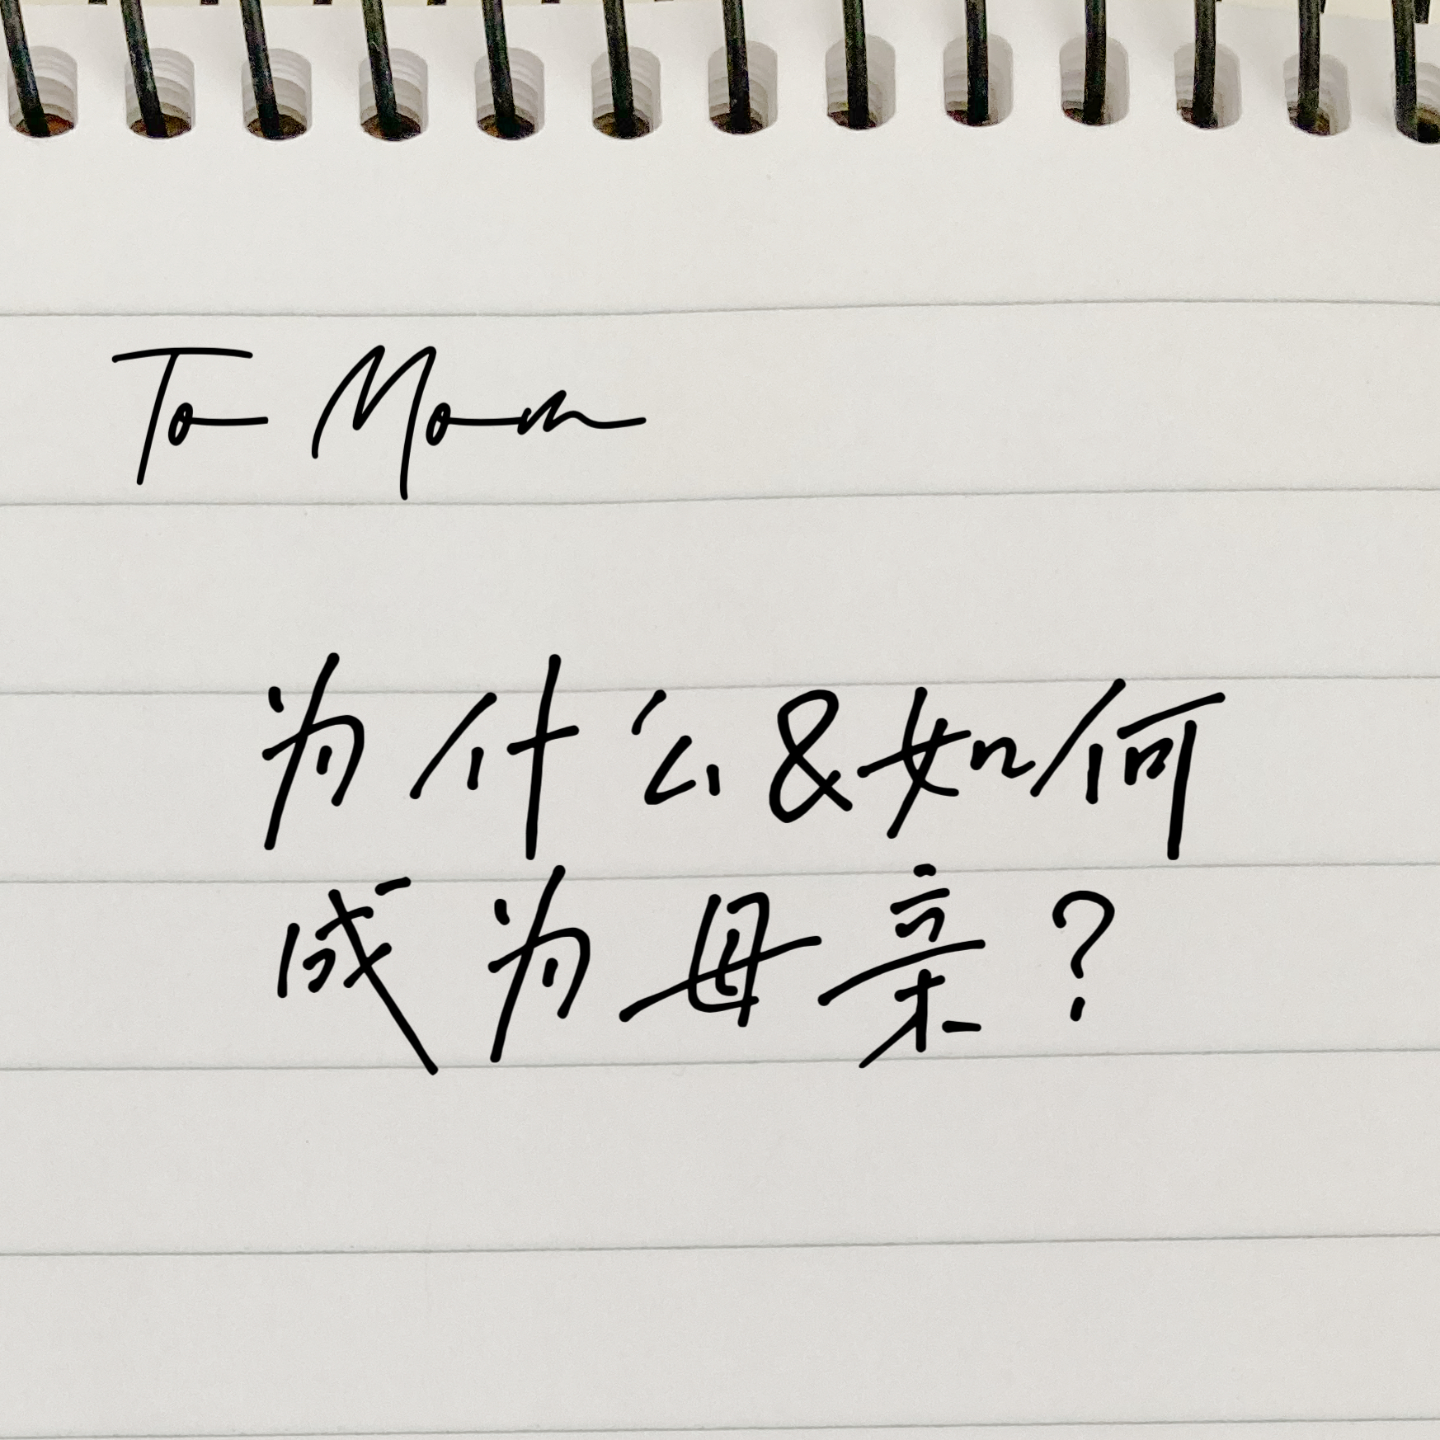 To Mom
为什么&如何
成为母亲?